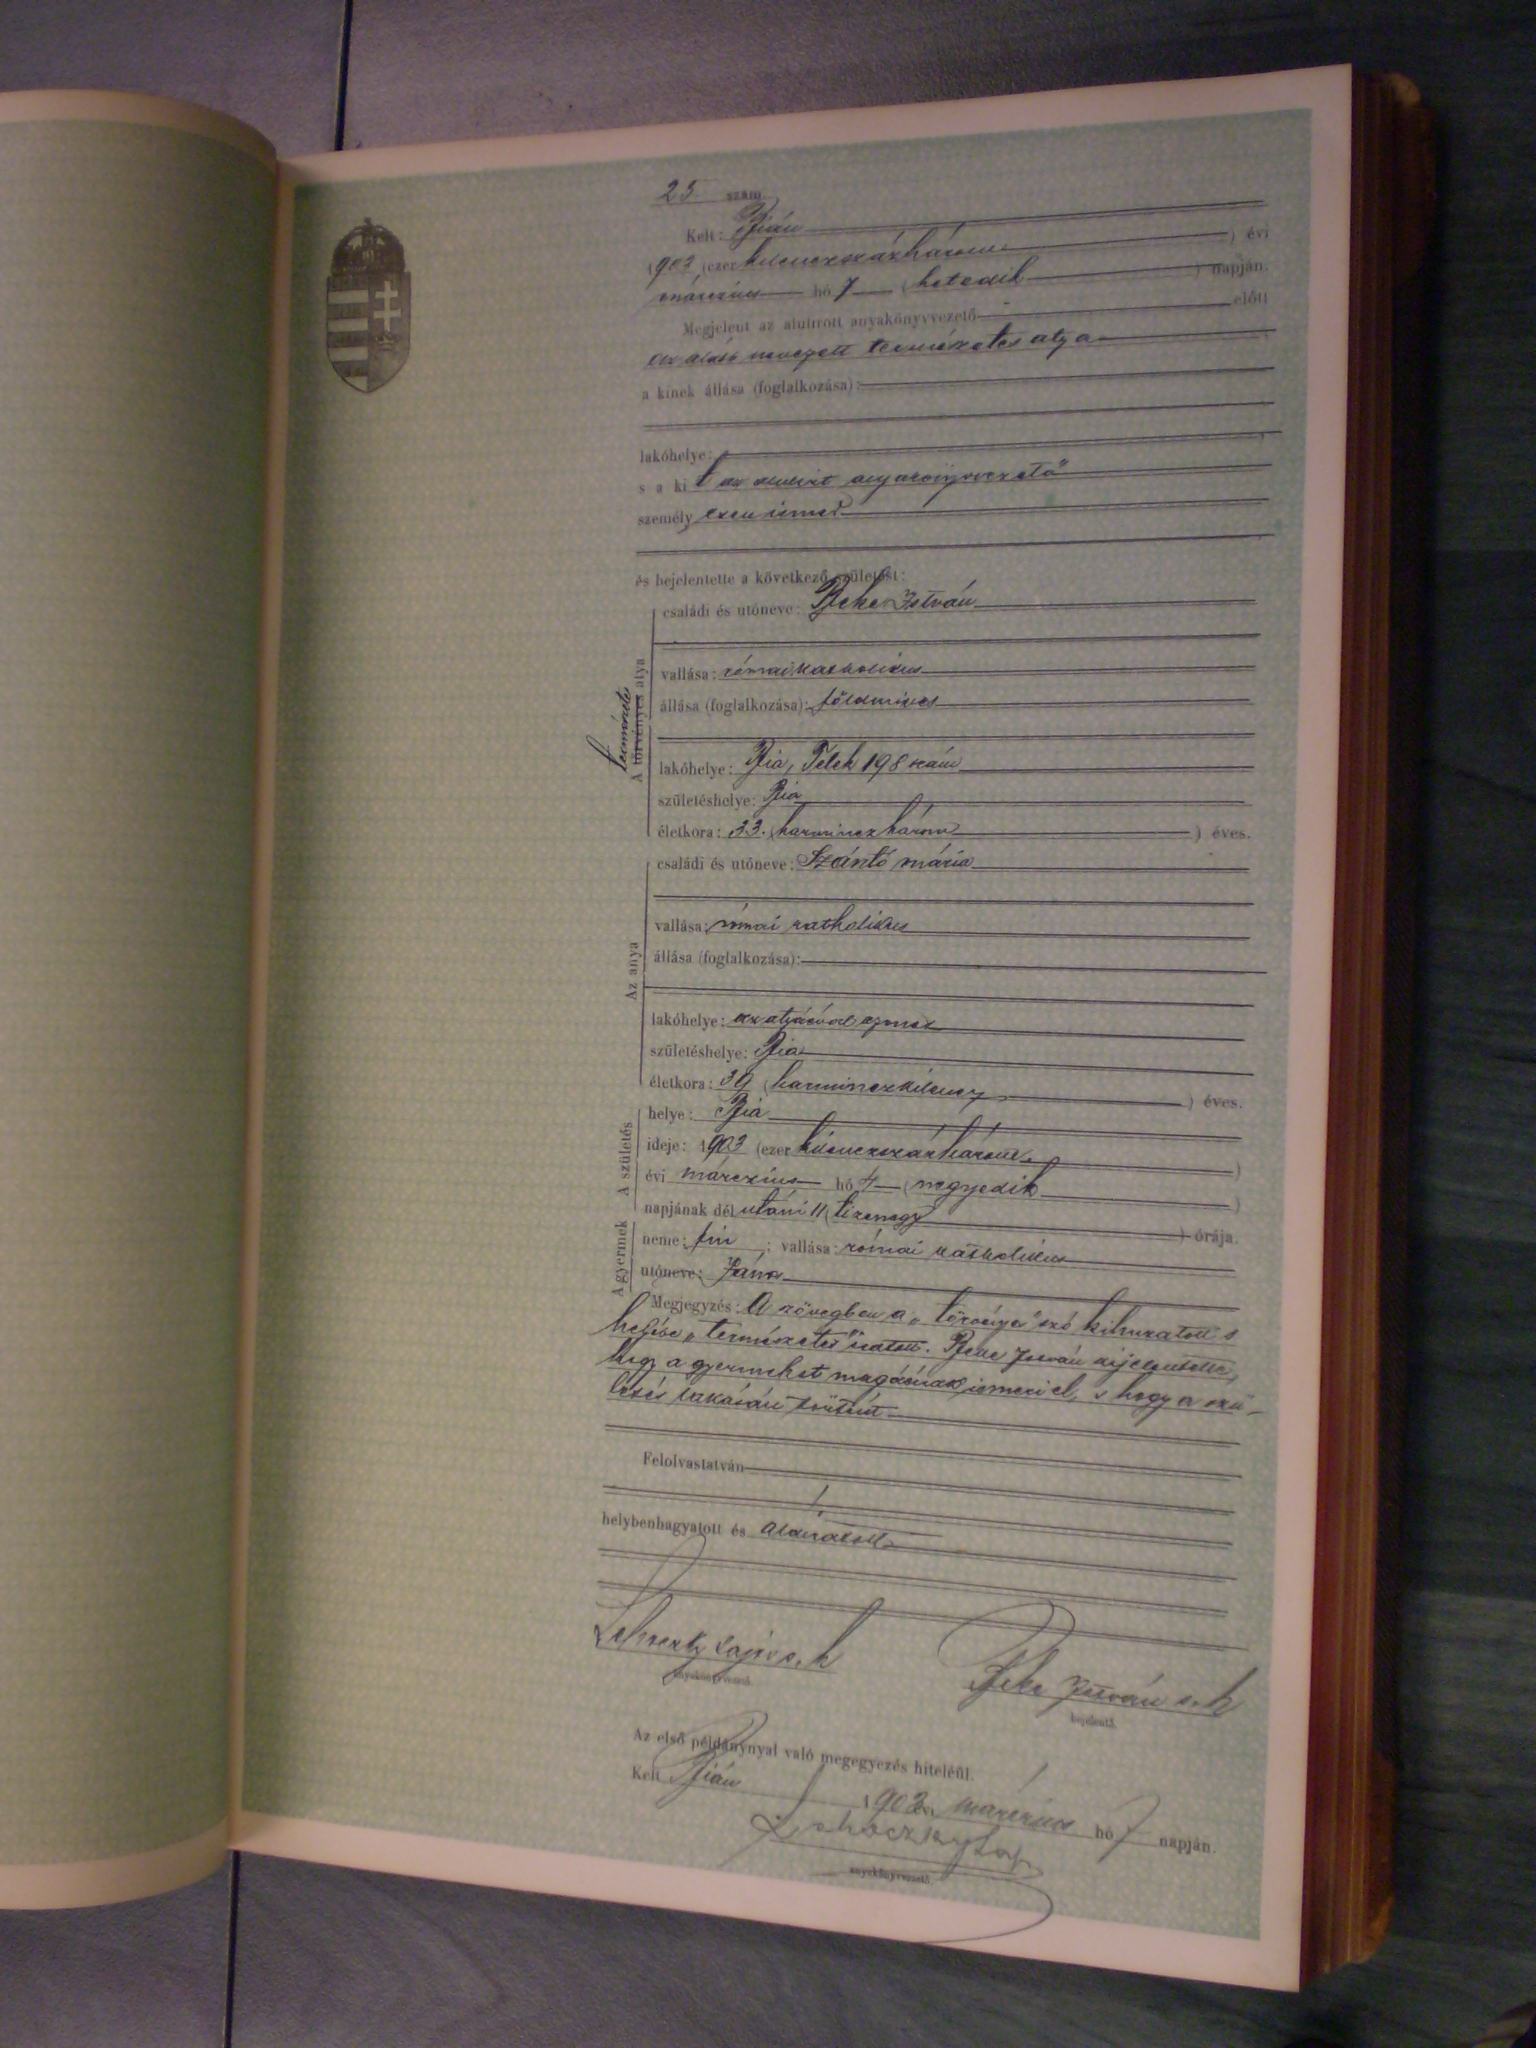 25 szám.
Kelt: Bián
1903 (ezer kilenczszázhárom) évi
márczius hó 7 (hetedik) napján.
Megjelent az alulirott anyakönyvvezető előtt
az alább nevezett természetes atya
a kinek állása (foglalkozása):
lakóhelye:
s a kit az alulirt anyakönyvvezető
személyesen ismer
és bejelentette a következő születést:
A törvényes atya
természetes
családi és utóneve: Beke István
vallása: római katholikus
állása (foglalkozása): földmives
lakóhelye: Bia, Telek 198 szám
születéshelye: Bia
életkora: 33. (harminczhárom) éves.
Az anya
családi és utóneve: Szántó mária
vallása: római katholikus
állása (foglalkozása):
lakóhelye: az atyáéval azonos
születéshelye: Bia
életkora: 39 (harminczkilencz) éves.
A születés
helye: Bia
ideje: 1903 (ezer kilenczszázhárom)
évi márczius hó 4 (negyedik)
napjának délutáni 11 (tizenegy) órája.
A gyermek
neme: fiú; vallása: római katholikus
utóneve: János
Megjegyzés: A szövegben a „törvényes" szó kihuzatott s
helyébe „természetes" iratott. Beke István kijelentette,
hogy a gyermeket magáénak ismeri el, s hogy a szü-
letés lakásán történt
Felolvastatván
helybenhagyatott és aláiratott
Lehoczky Lajos s. k
anyakönyvvezető.
Beke István s. k
bejelentő.
Az első példánynyal való megegyezés hiteléül.
Kelt Bián 1903 évi márczius hó 7 napján.
Lehoczky Laj
anyakönyvvezető.